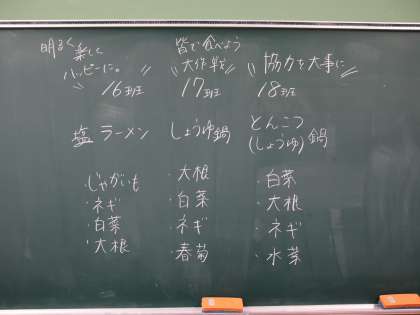 明るく楽しく
ハッピーに。
16班
塩ラーメン
・じゃがいも
・ネギ
・白菜
・大根
皆で食べよう
大作戦
17班
しょうゆ鍋
・大根
・白菜
・ネギ
・春菊
協力を大事に
18班
とんこつ
(しょうゆ)鍋
・白菜
・大根
・ネギ
・水菜